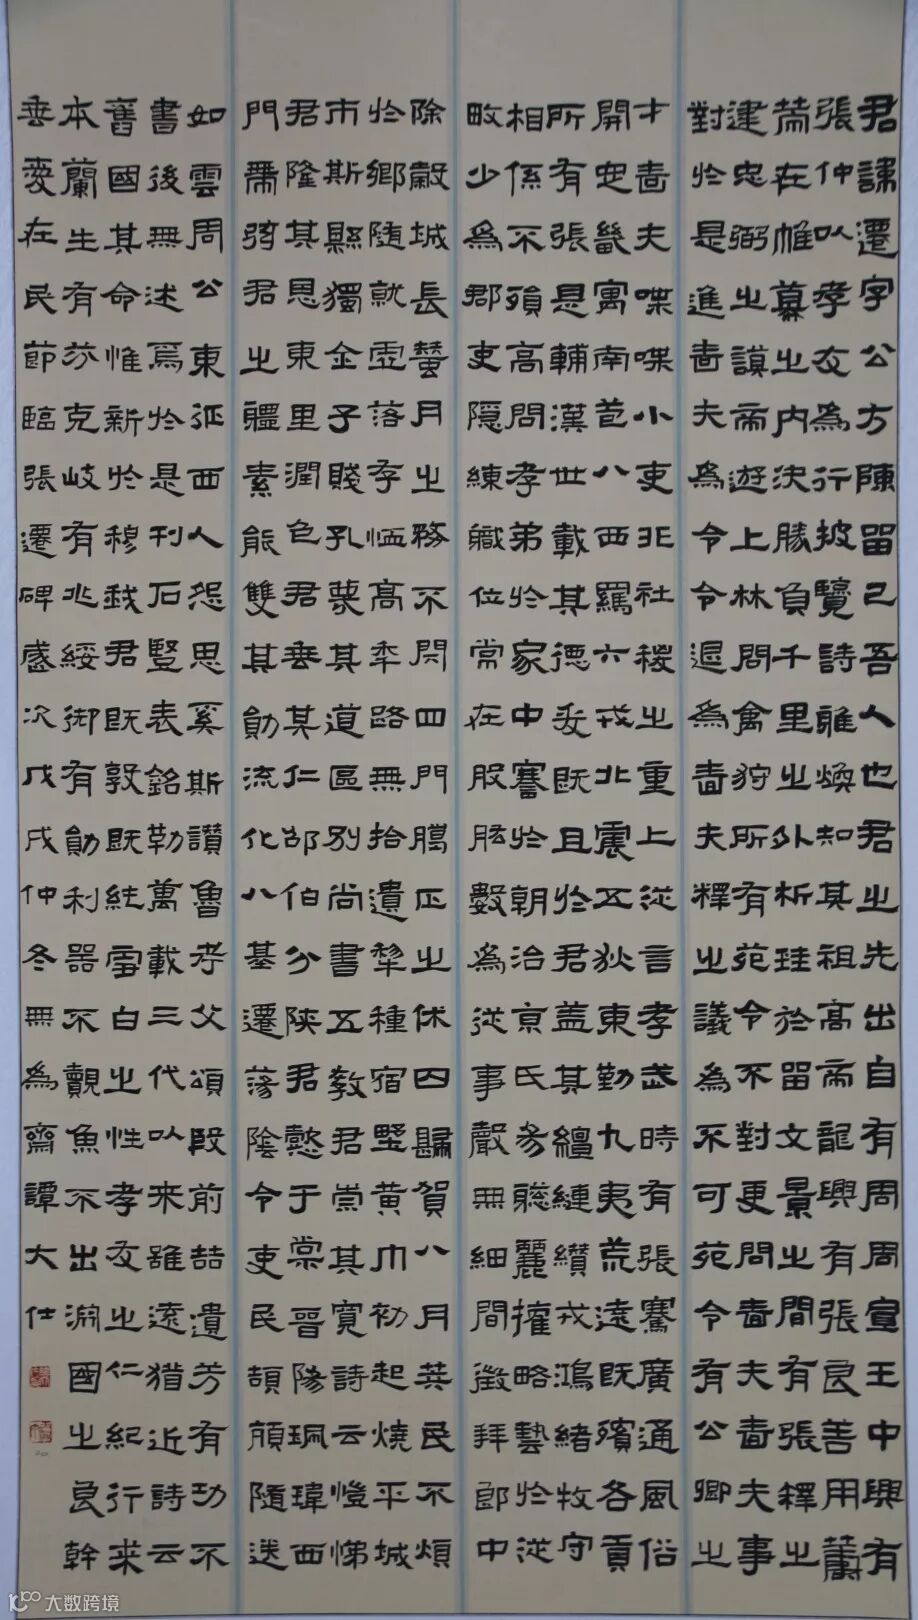 君諱遷字公方陳留己吾人也君之先出自有周周宣王中興有
張仲以孝友為行披覽詩雅煥知其祖高帝龍興有張良善用籌
策在帷幕之內決勝負千里之外析珪於留文景之間有張釋之
建忠弼之謨帝遊上林問禽狩所有苑令不對更問嗇夫嗇夫事
對於是進嗇夫為令令退為嗇夫釋之議為不可苑令有公卿之
才嗇夫喋喋小吏非社稷之重上從言孝武時有張騫廣通風俗
開定畿寓南苞八西羈六戎北震五狄東勤九夷荒遠既殯各貢
所有張是輔漢世載其德爰既且於君蓋其繵縺纘戎鴻緒牧守
相係不殞高問孝弟於家中謇於朝治京氏易聰麗權略藝於從
畋少為郡吏隱練職位常在股肱數為從事聲無細聞徵拜郎中
除穀城長蠶月之務不閉四門臘正之休囚歸賀八月筭民不煩
於鄉隨就虛落存恤高年路無拾遺犁種宿野黃巾初起燒平城
市斯縣獨全子賤孔蔑其道區別尚書五教君崇其寬詩云愷悌
君隆其恩東里潤色君垂其仁邵伯分陝君懿于棠晉陽珮瑋西
門帶弦君之體素能雙其勛流化八基遷蕩陰令吏民頡頏隨送
如雲周公東征西人怨思奚斯讚魯考父頌殷前喆遺芳有功不
書後無述焉於是刊石豎表銘勒萬載三代以來雖遠猶近詩云
舊國其命惟新於穆我君既敦既純雪白之性孝友之仁紀行來
本蘭生有芬克岐有兆綏御有勛利器不覿魚不出淵國之良幹
垂愛在民節臨張遷碑歲次戊戌仲冬無為齋譚大仕
大数跨境